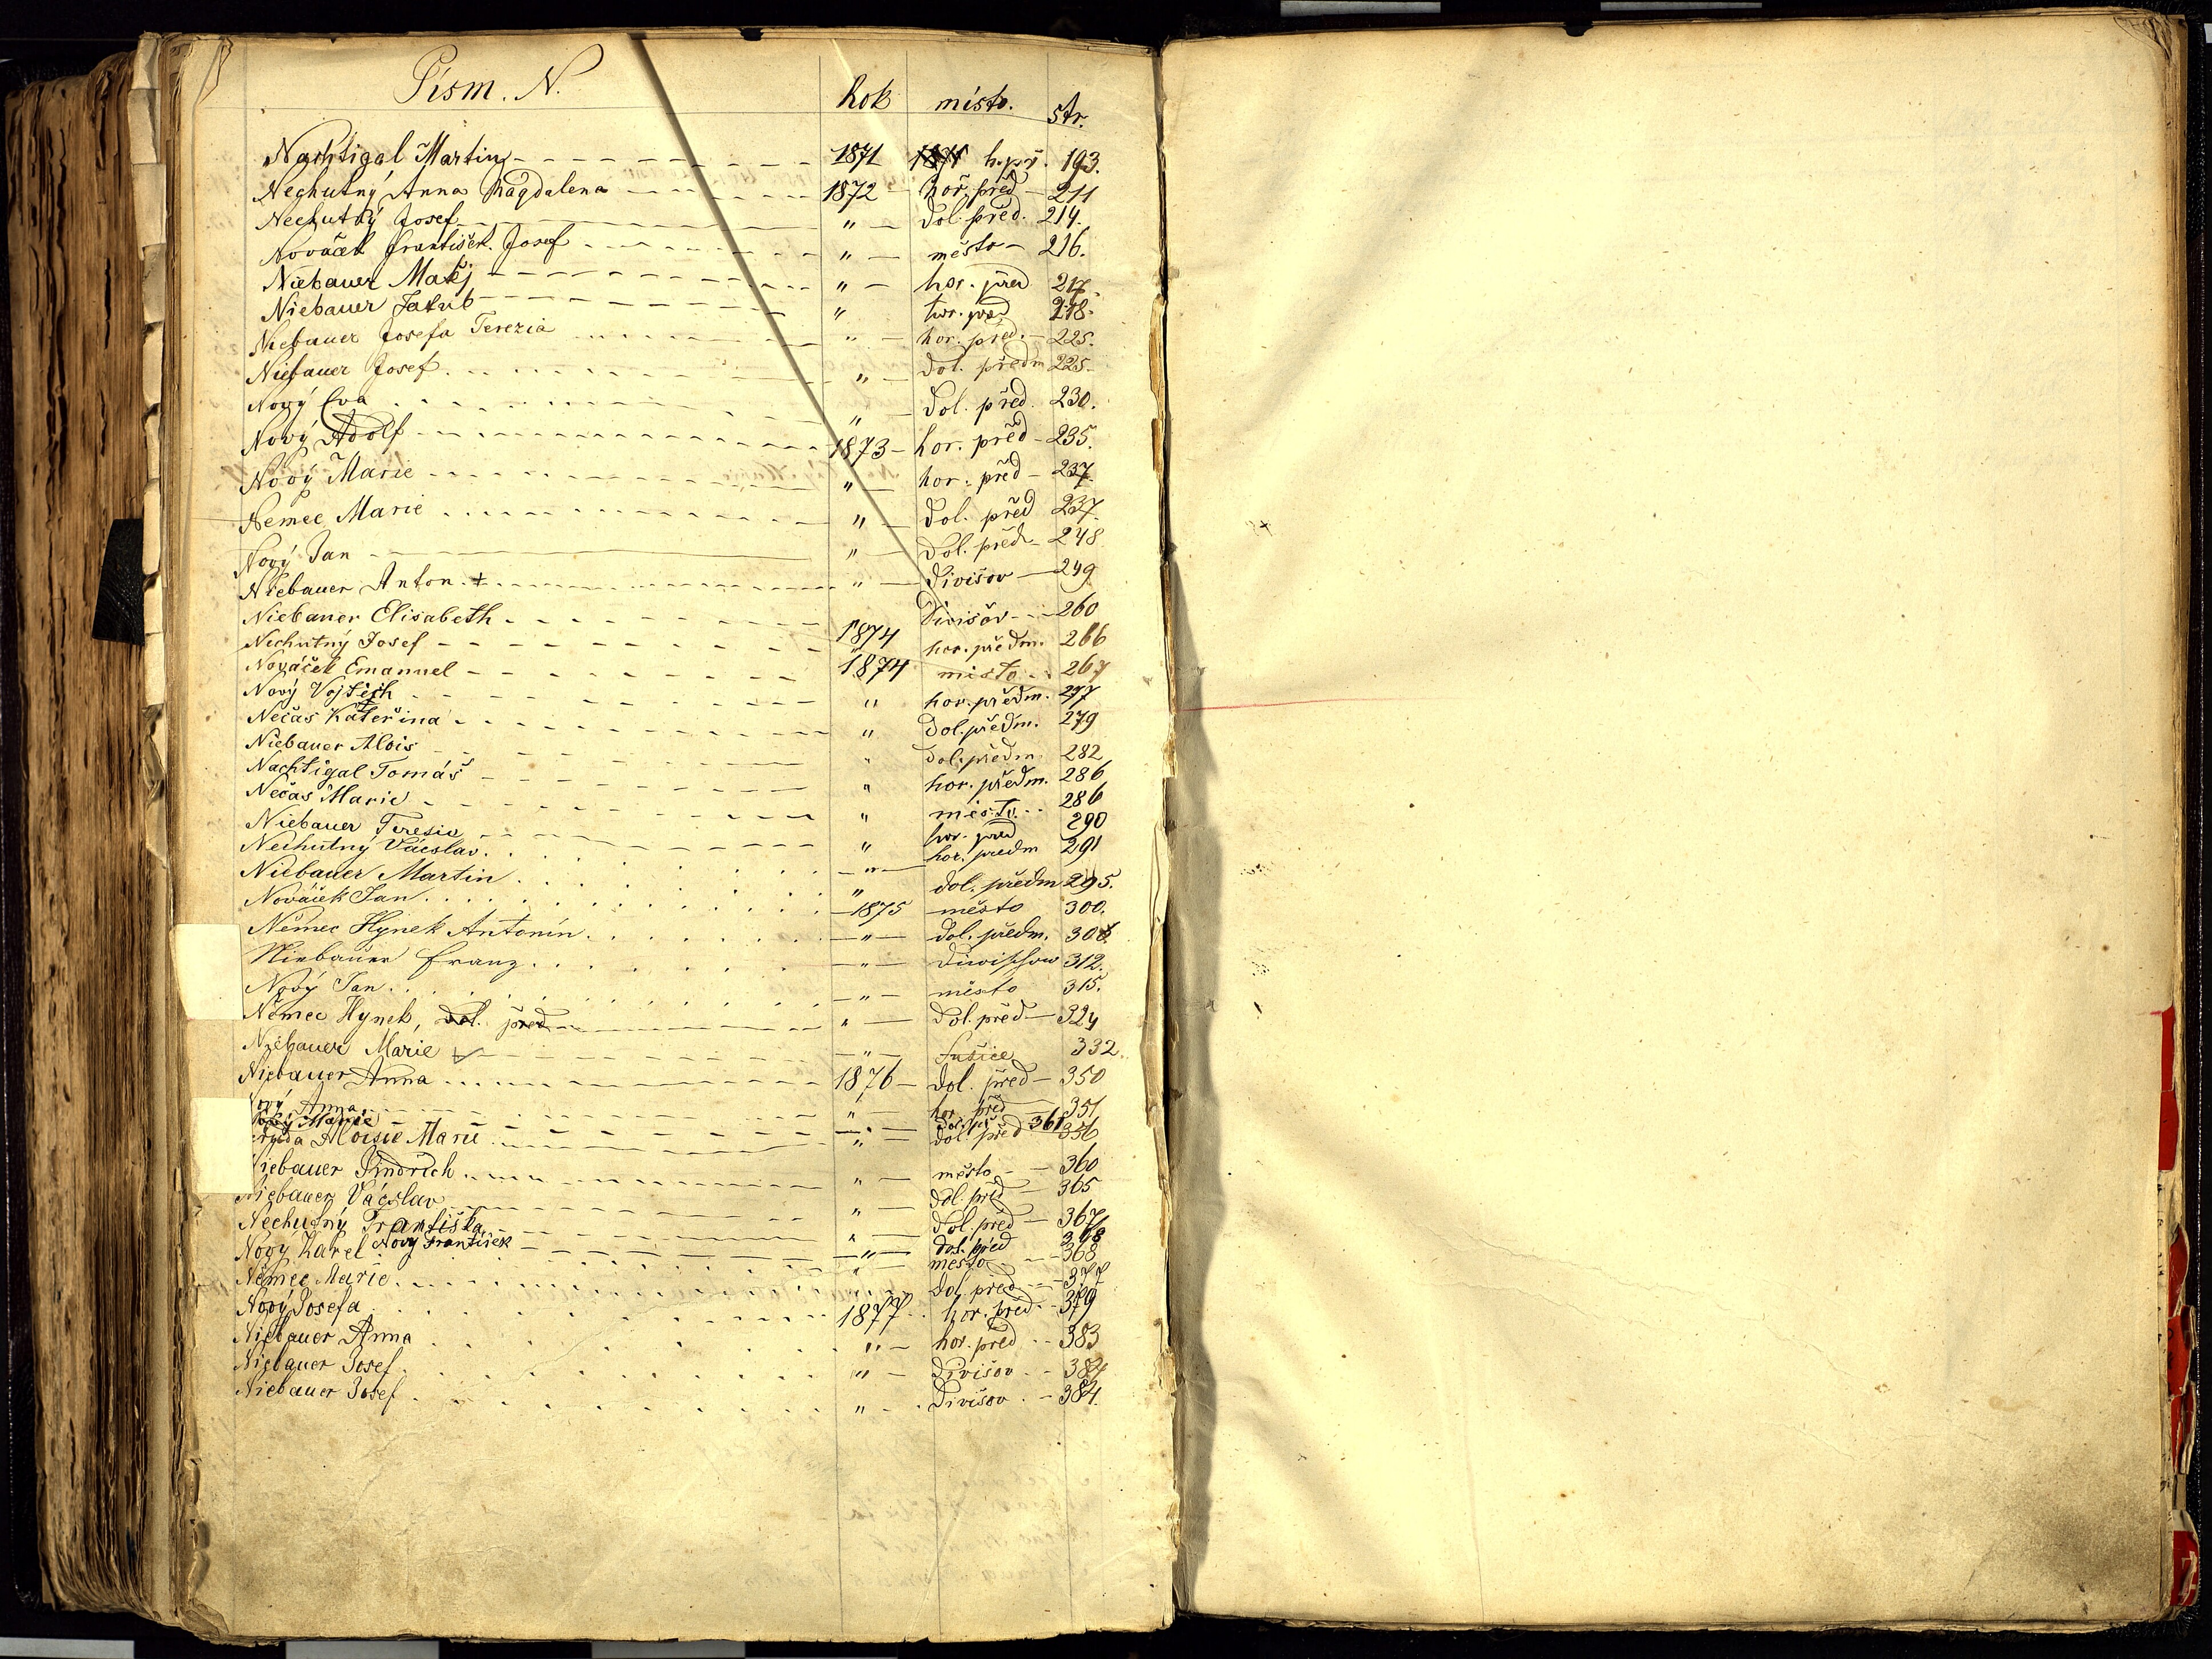 Písm. N. Rok místo. str.
Nachtigal Martin 1871 h. př. 193.
Nechutný Anna Magdalena 1872 hoř. před 211
Nechutný Josef " dol. před. 214.
Nováček František Josef " město 216.
Niebauer Matěj " hor. před 217.
Niebauer Jakub " hor. pred 218.
Niebauer Josefa Terezia " hor. před. 225.
Niebauer Josef " dol. předm 225.
Nový Eva " dol. před. 230.
Nový Adolf 1873 hor. před 235.
Nový Marie " hor. před 237.
Nemec Marie " dol. před 237.
Nový Jan " dol. před 248
Niebauer Anton. + " Divišov 249
Niebauer Elisabeth Divišov 260
Nechutný Josef 1874 hor. předm. 266
Nováček Emanuel 1874 místo 267
Nový Vojtěch " hor. předm. 277
Nečas Kateřina " dol. předm. 279
Niebauer Alois " dol. předm. 282
Nachtigal Tomáš " hor. předm. 286
Nečas Marie " město 286
Niebauer Teresie " hor. pred 290
Nechutný Vácslav " hor. předm 291
Niebauer Martin " dol. předm 295.
Nováček Jan 1875 město 300.
Němec Hynek Antonín " dol. předm.
Niebauer Franz " Diwischow 312.
Nový Jan " město 315.
Němec Hynek, dol. před " Dol. před 324
Niebauer Marie " Sušice 332.
Niebauer Anna 1876 dol. před 350
Anna " hor. před 351
Nový Marie " Dol. př. 361
Aloisie Marie " dol. před 356
Niebauer Jindrich " město 360
Niebauer Vácslav " dol. před 365
Nechutný Františka " dol. před 367
Nový František " dol. před 368
Nový Karel " město 368
Němec Marie dol. před 377
Nový Josefa 1877 hor. před 379
Niebauer Anna " hor. před 383
Niebauer Josef " Divišov 384
Niebauer Josef " Divišov 384.